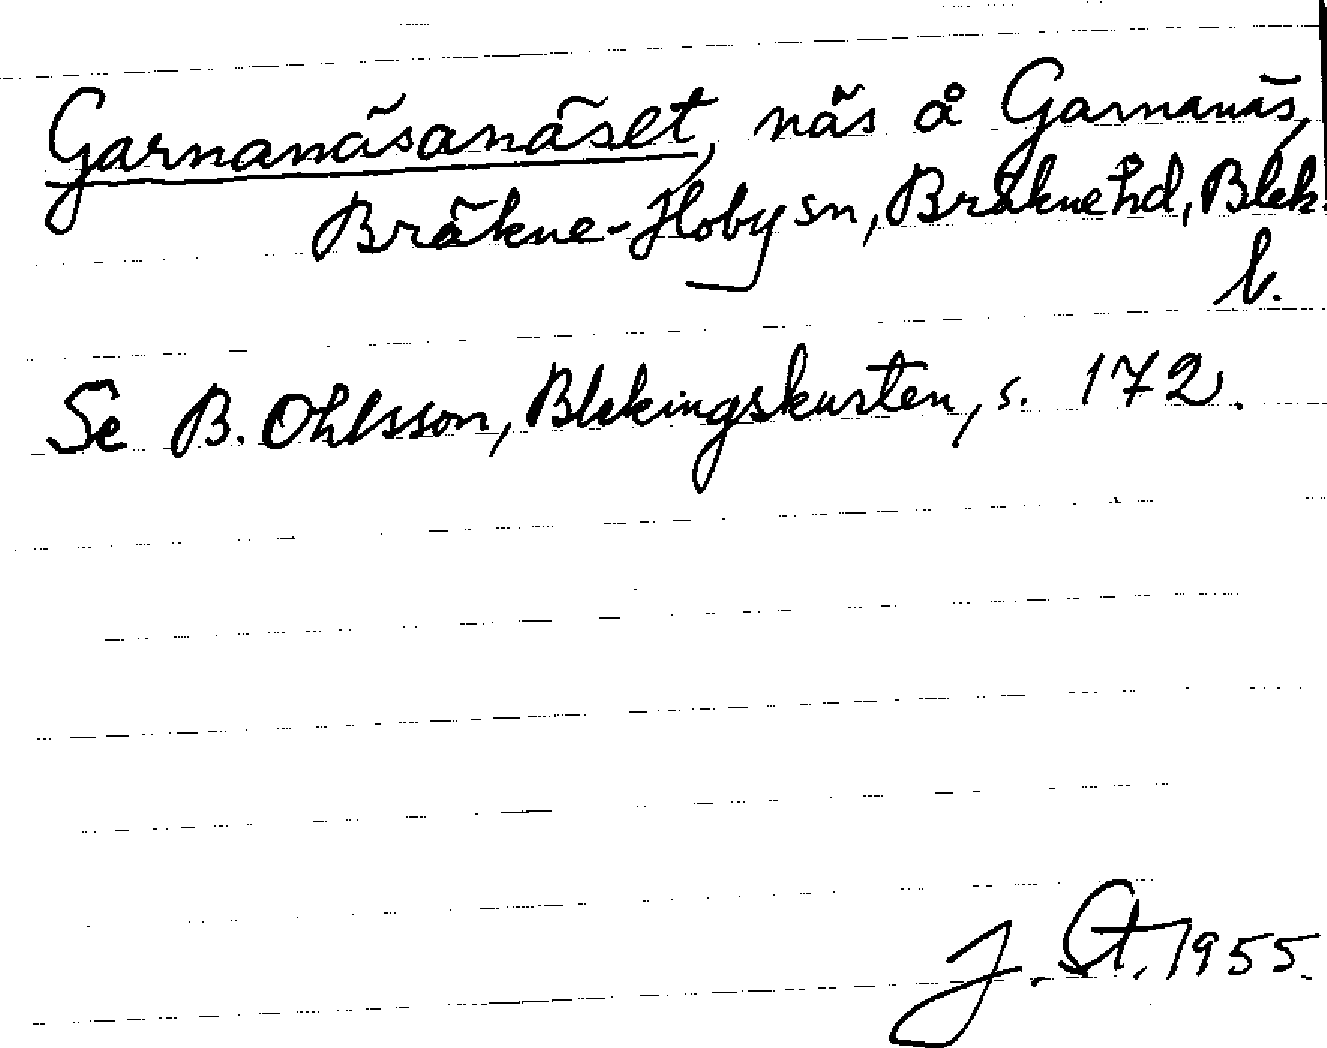 Garnanäsanäset, näs å Garnanäs,
Bräkne-Hoby sn, Bräkne hd, Blek.
l.
Se B. Ohlsson, Blekingskusten, s. 172.
J. St. 1955.